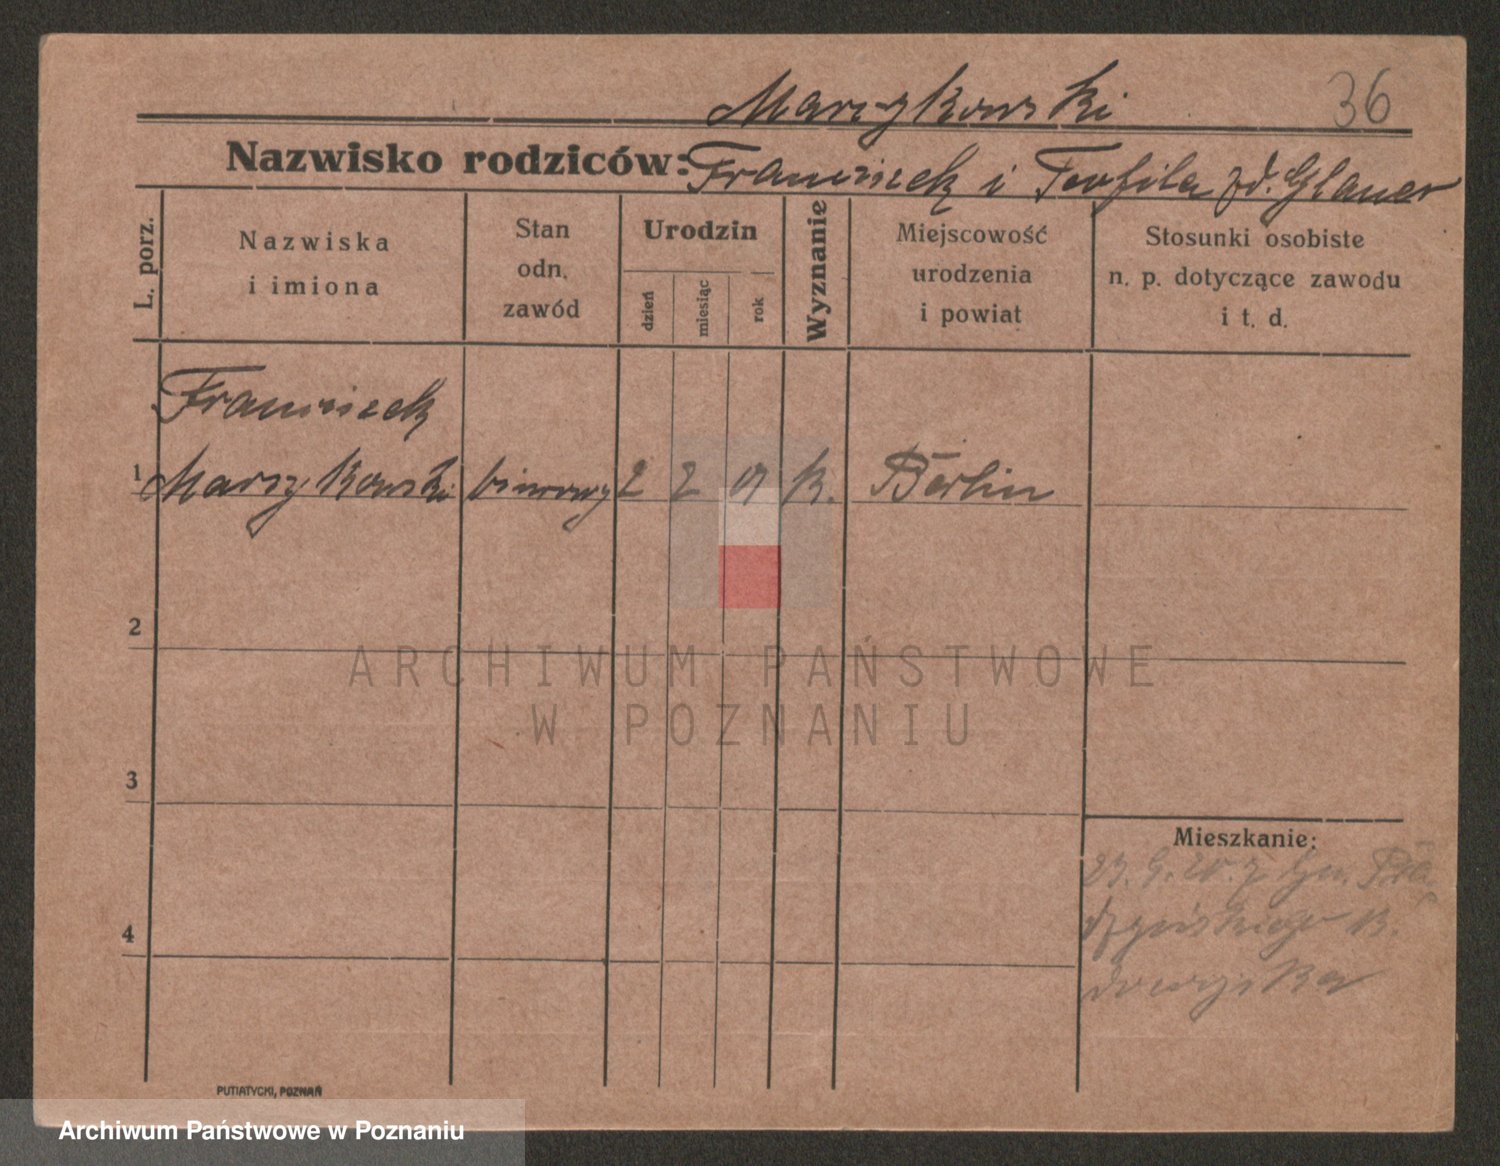 Marszykowski
36
Nazwisko rodziców: Franciszek i Teofila zd. Glauer
L. porz.
Nazwiska
i imiona
Stan
odn.
zawód
Urodzin
dzień
miesiąc
rok
Wyznanie
Miejscowość
urodzenia
i powiat
Stosunki osobiste
n. p. dotyczące zawodu
i t. d.
Franciszek
1 Marszykowski biurowy 2 2 01 k. Berlin
2
ARCHIWUM PAŃSTWOWE
W POZNANIU
3
Mieszkanie:
23. 9. 20. z
4
PUTIATYCKI, POZNAŃ
Archiwum Państwowe w Poznaniu